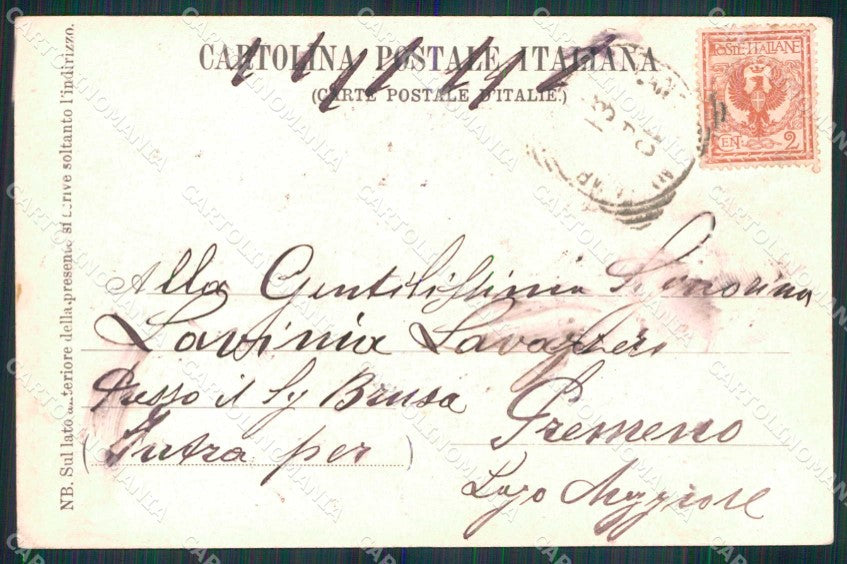 CARTOLINA POSTALE ITALIANA
(CARTE POSTALE D'ITALIE)
POSTE ITALIANE
CEN. 2
NB. Sul lato anteriore della presente si scrive soltanto l'indirizzo.
Alla Gentilissima Signorina
Lavinia
Presso il Sg Brusa
(Intra per) Premeno
Lago Maggiore
CARTOLINOMANIA